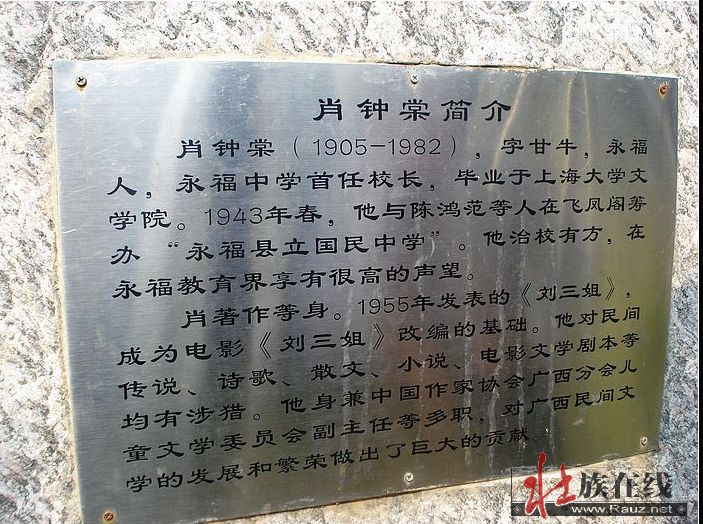 肖钟棠简介
肖钟棠（1905-1982），字甘牛，永福
人，永福中学首任校长，毕业于上海大学文
学院。1943年春，他与陈鸿范等人在飞凤阁筹
办“永福县立国民中学”。他治校有方，在
永福教育界享有很高的声望。
肖著作等身。1955年发表的《刘三姐》，
成为电影《刘三姐》改编的基础。他对民间
传说、诗歌、散文、小说、电影文学剧本等
均有涉猎。他身兼中国作家协会广西分会儿
童文学委员会副主任等多职，对广西民间文
学的发展和繁荣做出了巨大的贡献。
壮族在线
www.Rauz.net